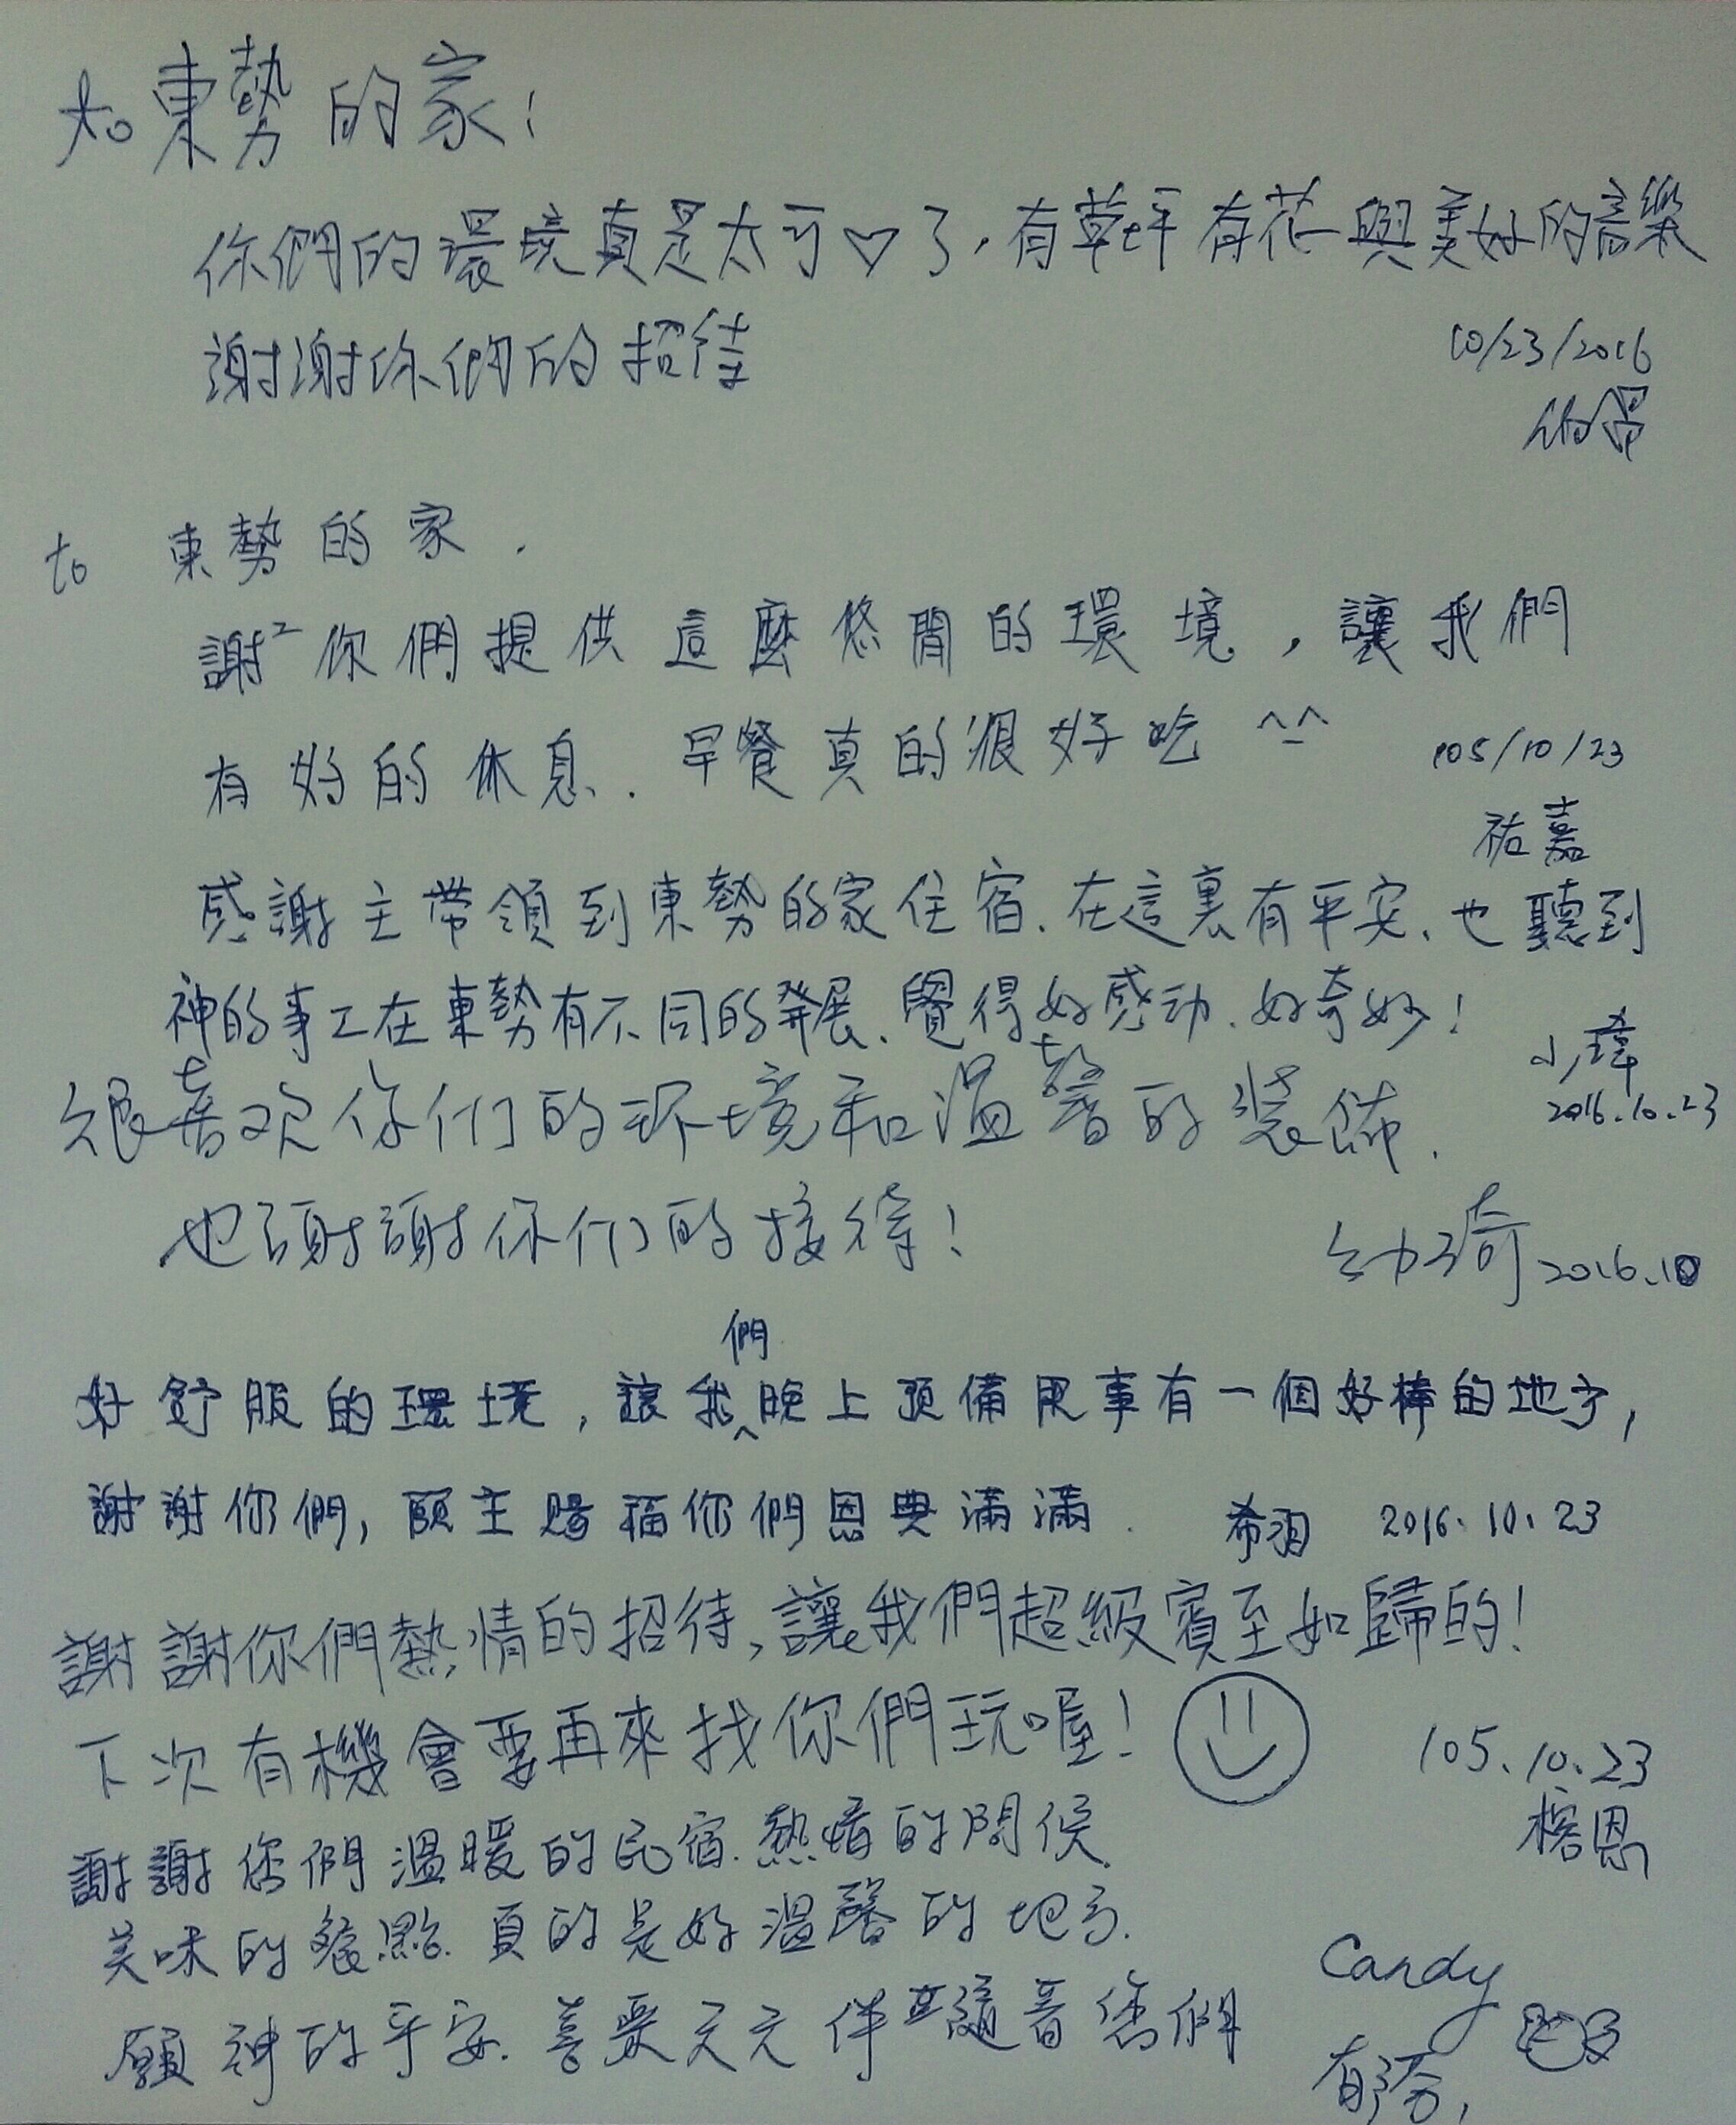 to 東勢的家：
你們的環境真是太可♡了，有草坪有花與美好的音樂
謝謝你們的招待
10/23/2016
to 東勢的家．
謝²你們提供這麼悠閒的環境，讓我們
有好的休息．早餐真的很好吃 ^_^
105/10/23
祐嘉
感謝主帶領到東勢的家住宿、在這裏有平安、也聽到
神的事工在東勢有不同的發展、覺得好感动、好奇妙！
小瑋
2016.10.23
很喜欢你们的环境和温馨的装佈．
也謝謝你们的接待！
幼琦 2016.10
好舒服的環境，讓我們晚上預備服事有一個好棒的地方，
謝謝你們，願主賜福你們恩典滿滿．
希羽 2016.10.23
謝謝你們熱情的招待，讓我們超級賓至如歸的！
下次有機會要再來找你們玩喔！
105.10.23
榕恩
謝謝您們溫暖的民宿．熱情的問候．
美味的餐點．真的是好溫馨的地方．
願神的平安．喜樂天天伴隨著您們
Candy